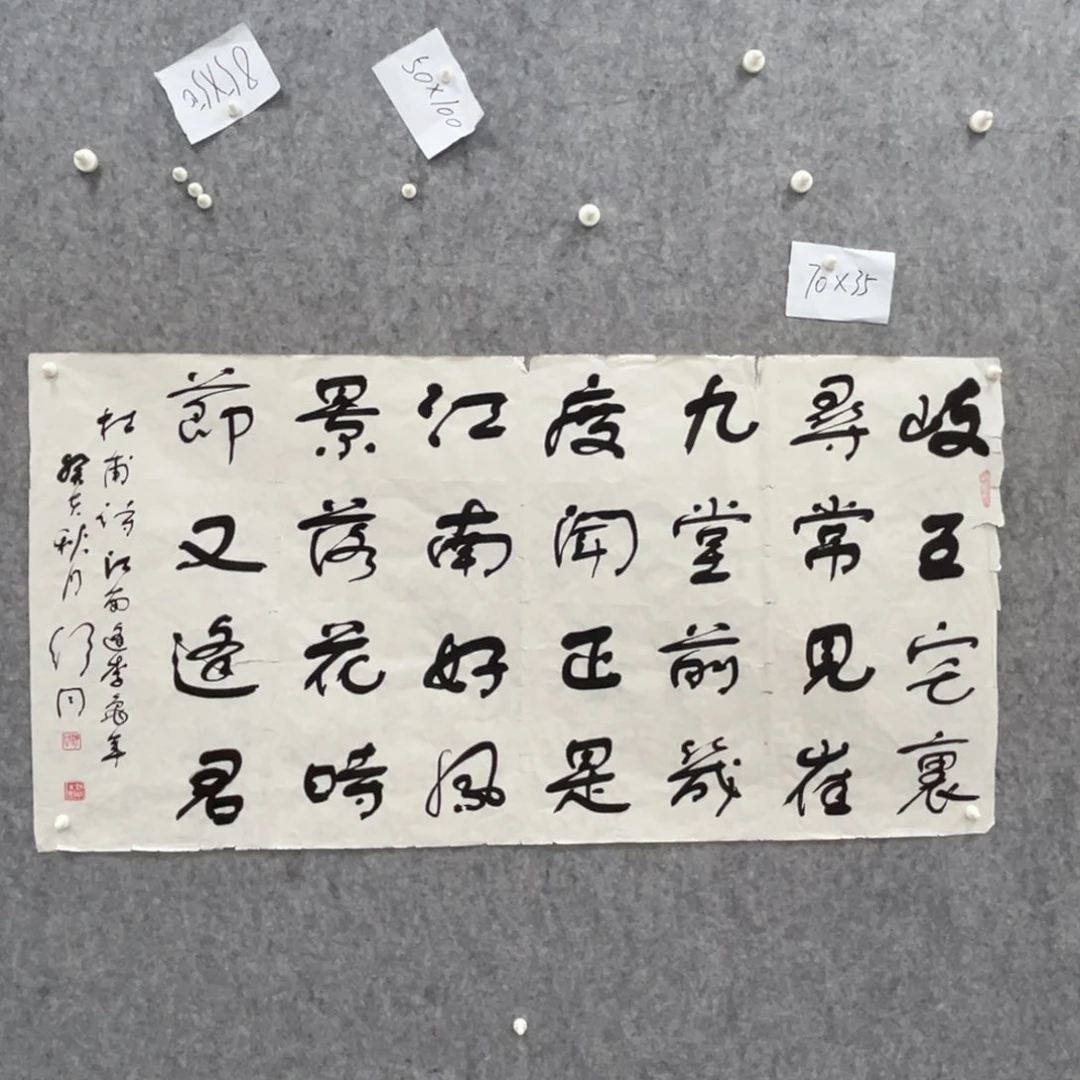 50x100
70x35
岐王宅裏
尋常見崔
九堂前幾
度聞正是
江南好風
景落花時
節又逢君
杜甫詩江南逢李龜年
癸亥秋月舒同